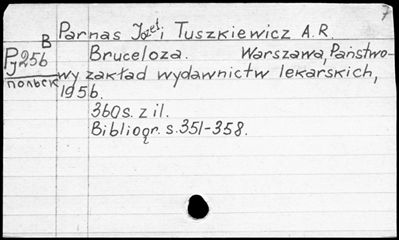 7
B Parnas Józef i Tuszkiewicz A.R.
Bruceloza. Warszawa, Państwo-
wy zakład wydawnictw lekarskich,
1956.
польск
360 s. z il.
Bibliogr. s. 351-358.